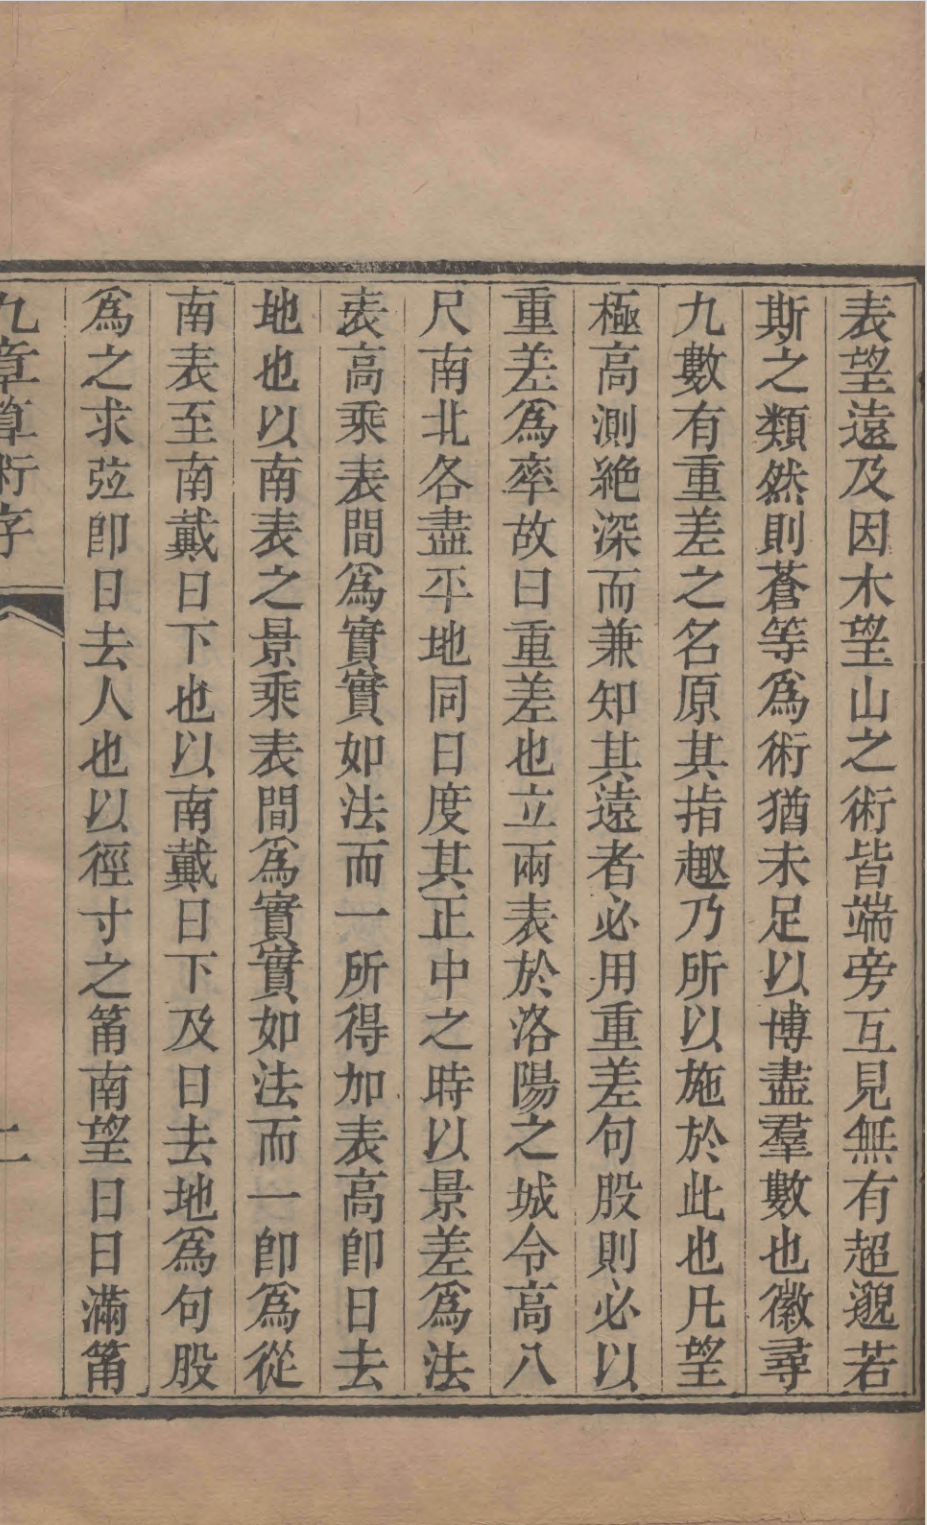 表望遠及因木望山之術皆端旁互見無有超邈若
斯之類然則蒼等爲術猶未足以博盡羣數也徽尋
九數有重差之名原其指趣乃所以施於此也凡望
極高測絶深而兼知其遠者必用重差句股則必以
重差爲率故曰重差也立兩表於洛陽之城令高八
尺南北各盡平地同日度其正中之時以景差爲法
表高乘表間爲實實如法而一所得加表高卽日去
地也以南表之景乘表間爲實實如法而一卽爲從
南表至南戴日下也以南戴日下及日去地爲句股
爲之求弦卽日去人也以徑寸之筩南望日日滿筩
九章算術序